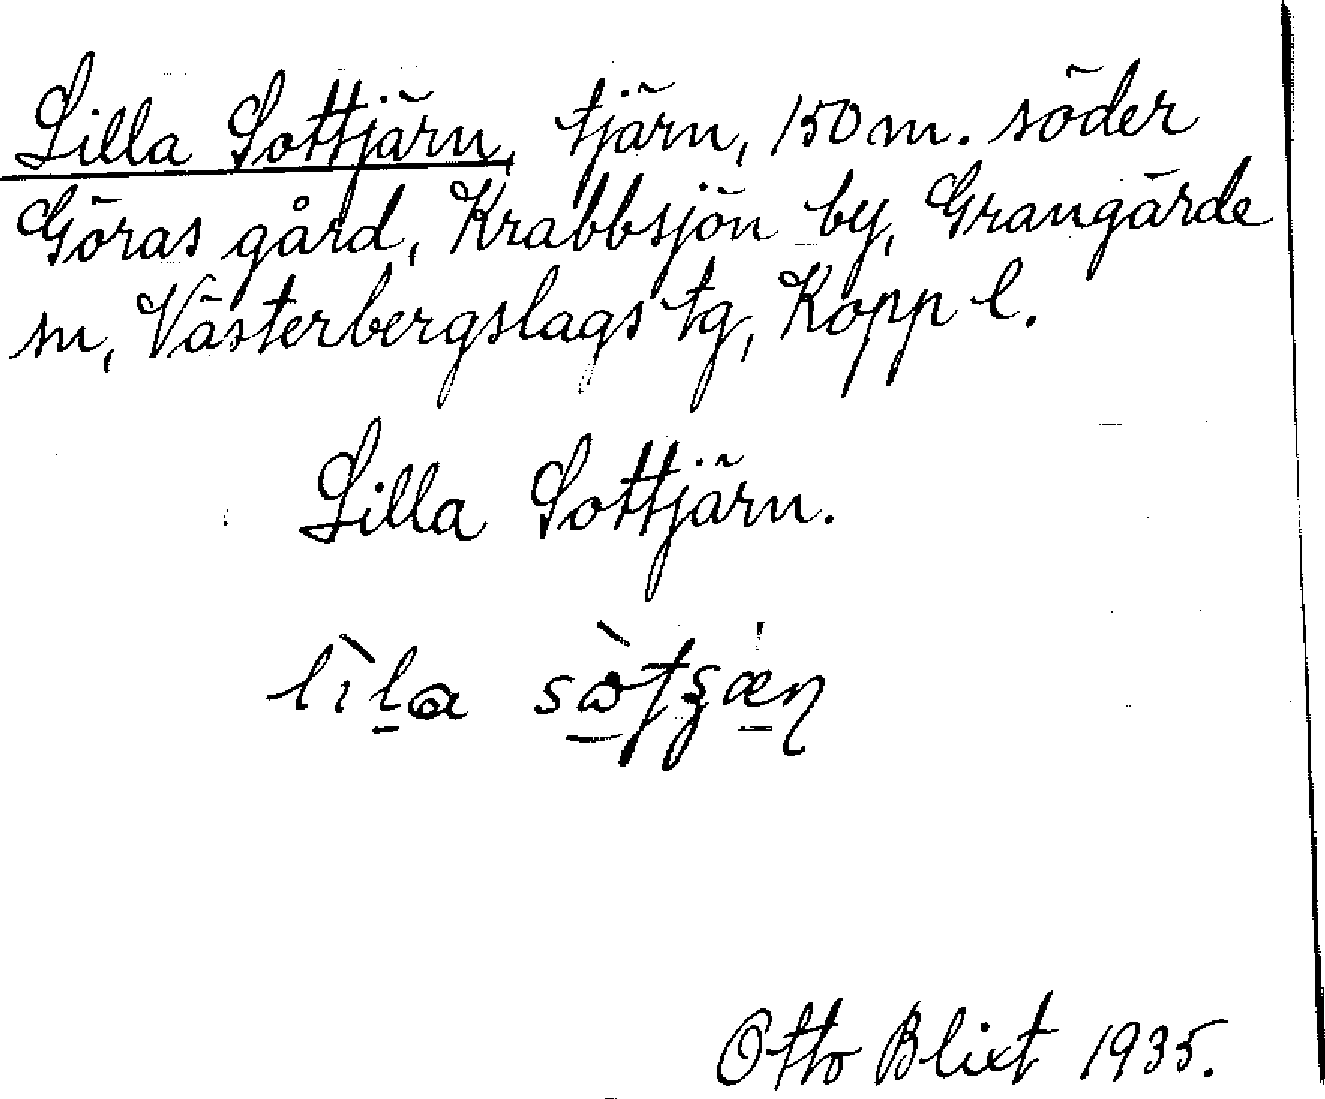 Lilla Sottjärn, tjärn, 150 m. söder
Göras gård, Krabbsjön by, Grangärde
sn, Västerbergslags tg, Kopp l.
Lilla Sottjärn.
Otto Blixt 1935.